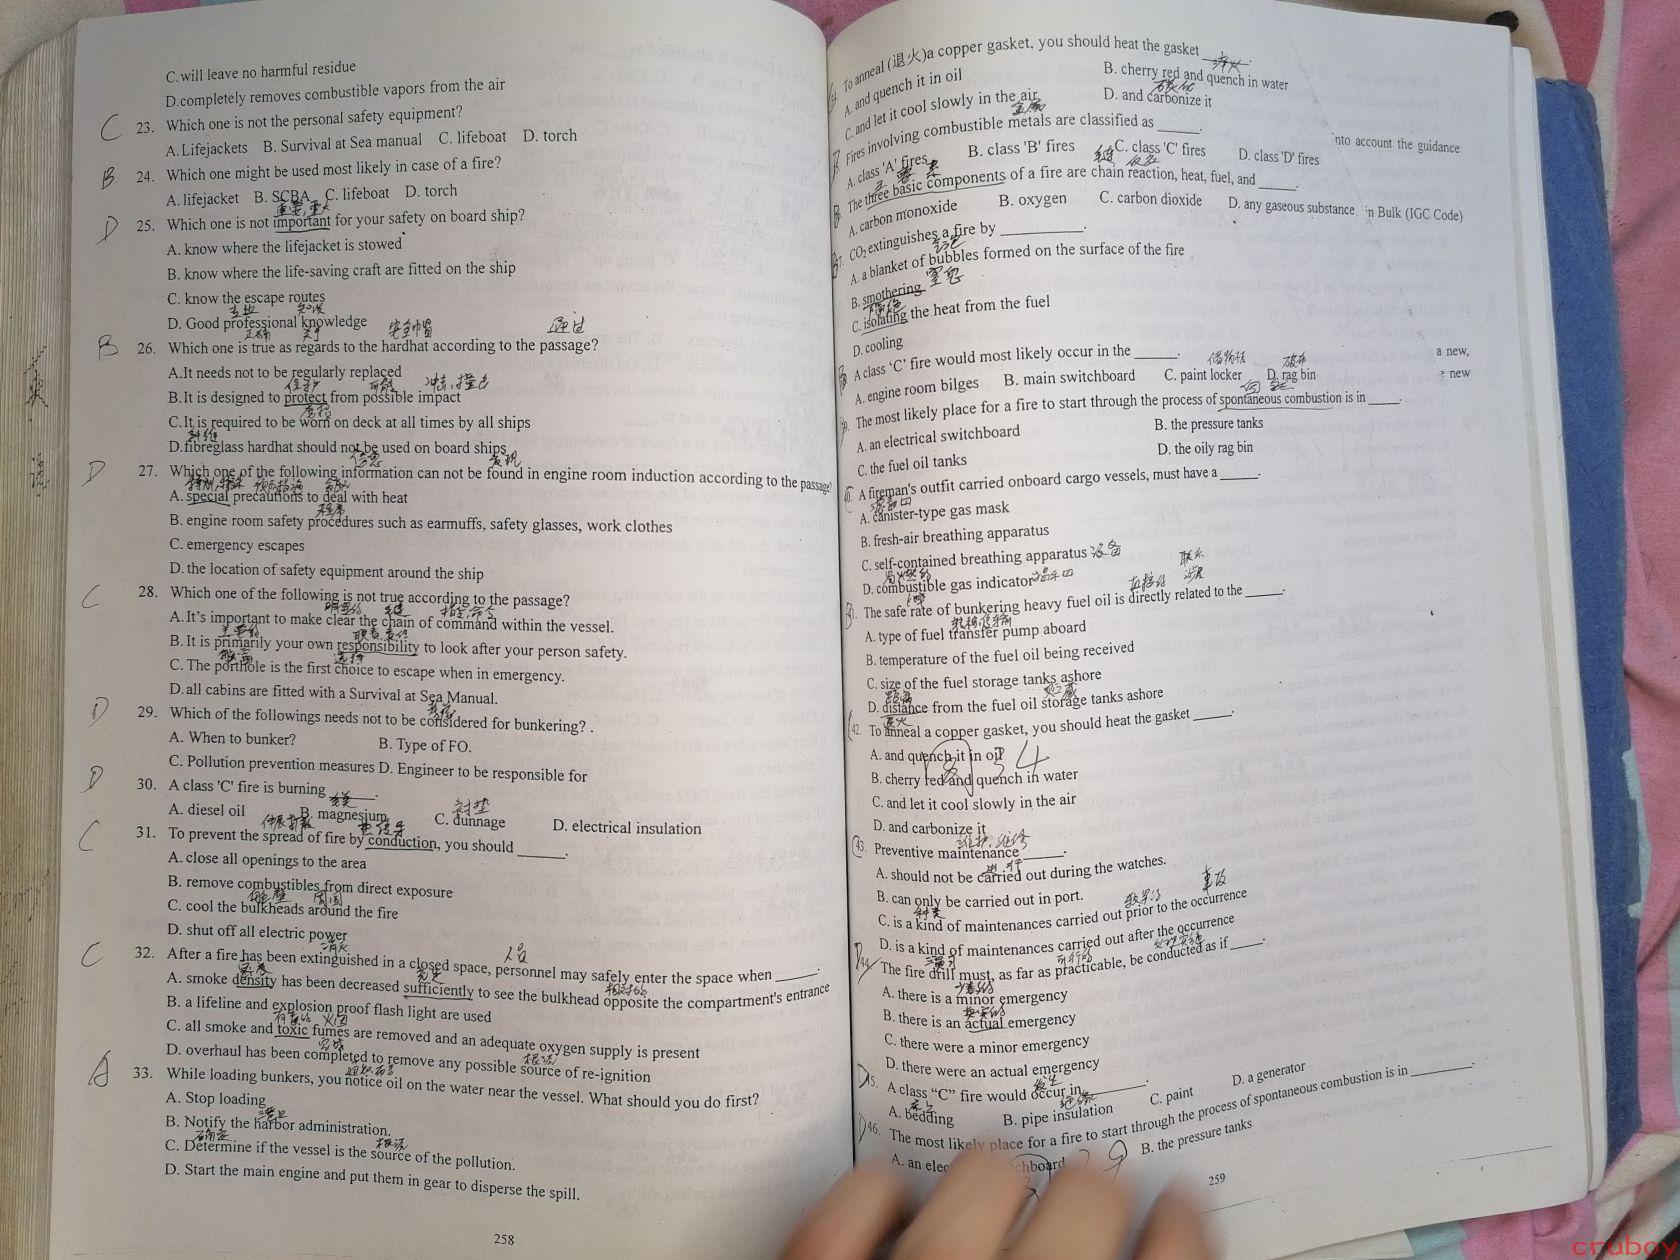 C. will leave no harmful residue
D. completely removes combustible vapors from the air
C 23. Which one is not the personal safety equipment?
A. Lifejackets B. Survival at Sea manual C. lifeboat D. torch
B 24. Which one might be used most likely in case of a fire?
A. lifejacket B. SCBA C. lifeboat D. torch
D 25. Which one is not important for your safety on board ship?
A. know where the lifejacket is stowed
B. know where the life-saving craft are fitted on the ship
C. know the escape routes
专业 知识
D. Good professional knowledge
正确 关于 安全帽 通过
B 26. Which one is true as regards to the hardhat according to the passage?
A.It needs not to be regularly replaced
保护 可能 冲击,撞击
B.It is designed to protect from possible impact
磨损
C.It is required to be worn on deck at all times by all ships
纤维
D.fibreglass hardhat should not be used on board ships
信息 发现
D 27. Which one of the following information can not be found in engine room induction according to the passage?
A. special precautions to deal with heat
程序
B. engine room safety procedures such as earmuffs, safety glasses, work clothes
C. emergency escapes
D. the location of safety equipment around the ship
C 28. Which one of the following is not true according to the passage?
A.It's important to make clear the chain of command within the vessel.
B. It is primarily your own responsibility to look after your person safety.
舷窗 选择
C. The porthole is the first choice to escape when in emergency.
D. all cabins are fitted with a Survival at Sea Manual.
D 29. Which of the followings needs not to be considered for bunkering? .
A. When to bunker? B. Type of FO.
C. Pollution prevention measures D. Engineer to be responsible for
D 30. A class 'C' fire is burning ______.
A. diesel oil B. magnesium C. dunnage D. electrical insulation
C 31. To prevent the spread of fire by conduction, you should ______.
A. close all openings to the area
B. remove combustibles from direct exposure
舱壁 周围
C. cool the bulkheads around the fire
D. shut off all electric power
消火 人员
C 32. After a fire has been extinguished in a closed space, personnel may safely enter the space when ______.
A. smoke density has been decreased sufficiently to see the bulkhead opposite the compartment's entrance
B. a lifeline and explosion proof flash light are used
C. all smoke and toxic fumes are removed and an adequate oxygen supply is present
完成 根源
D. overhaul has been completed to remove any possible source of re-ignition
A 33. While loading bunkers, you notice oil on the water near the vessel. What should you do first?
A. Stop loading
港口
B. Notify the harbor administration.
确定 根源
C. Determine if the vessel is the source of the pollution.
D. Start the main engine and put them in gear to disperse the spill.
258
To anneal (退火)a copper gasket, you should heat the gasket ______.
A. and quench it in oil B. cherry red and quench in water
C. and let it cool slowly in the air D. and carbonize it
金属
Fires involving combustible metals are classified as ______.
A. class 'A' fires B. class 'B' fires C. class 'C' fires D. class 'D' fires
nto account the guidance
The three basic components of a fire are chain reaction, heat, fuel, and ______.
A. carbon monoxide B. oxygen C. carbon dioxide D. any gaseous substance
in Bulk (IGC Code)
CO2 extinguishes a fire by __________.
A. a blanket of bubbles formed on the surface of the fire
B. smothering 窒息
隔绝
C. isolating the heat from the fuel
D. cooling
A class ‘C’ fire would most likely occur in the ______.
a new,
A. engine room bilges B. main switchboard C. paint locker D. rag bin
new
The most likely place for a fire to start through the process of spontaneous combustion is in ______.
A. an electrical switchboard B. the pressure tanks
C. the fuel oil tanks D. the oily rag bin
A fireman's outfit carried onboard cargo vessels, must have a ______.
A. canister-type gas mask
B. fresh-air breathing apparatus
C. self-contained breathing apparatus 设备
可燃的
D. combustible gas indicator
The safe rate of bunkering heavy fuel oil is directly related to the ______.
A. type of fuel transfer pump aboard
B. temperature of the fuel oil being received
C. size of the fuel storage tanks ashore
距离 贮藏
D. distance from the fuel oil storage tanks ashore
退火
42. To anneal a copper gasket, you should heat the gasket ______.
A. and quench it in oil 34
B. cherry red and quench in water
C. and let it cool slowly in the air
D. and carbonize it
维护,维修
43. Preventive maintenance ______.
进行
A. should not be carried out during the watches.
B. can only be carried out in port.
种类 事故
C. is a kind of maintenances carried out prior to the occurrence
D. is a kind of maintenances carried out after the occurrence
D 44. The fire drill must, as far as practicable, be conducted as if ______.
A. there is a minor emergency
B. there is an actual emergency
C. there were a minor emergency
D. there were an actual emergency
发生
D 45. A class “C” fire would occur in __________.
A. bedding B. pipe insulation C. paint D. a generator
D 46. The most likely place for a fire to start through the process of spontaneous combustion is in __________.
B. the pressure tanks
259
cruboy